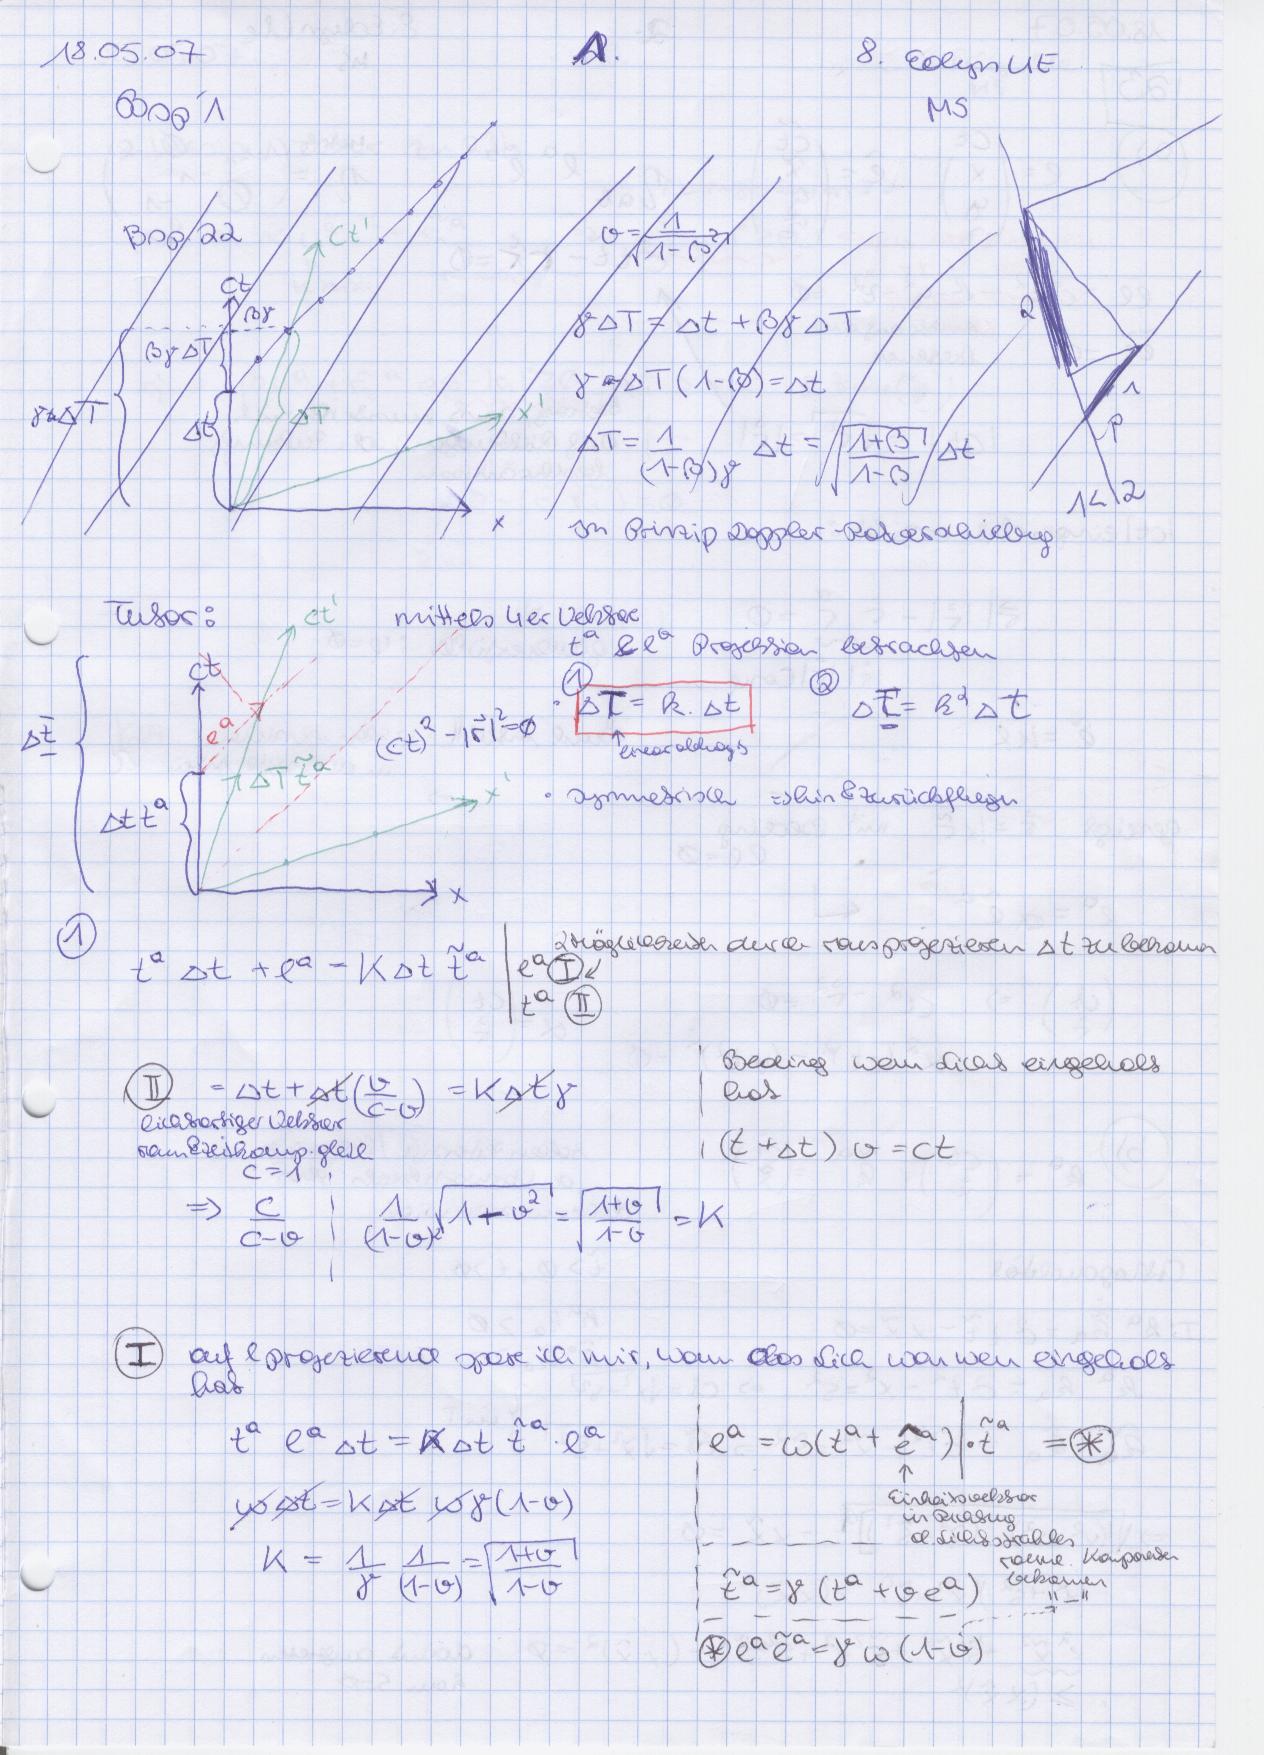 18.05.07
1.
8. Edyn UE
MS
Bsp 1
Bsp 22
ct'
ct
βγ
βγΔT
γΔT
Δt
ΔT
x'
x
v = 1/√(1-β²)
γΔT = Δt + βγΔT
γ ΔT(1-β) = Δt
ΔT = 1/((1-β)γ) Δt = √((1+β)/(1-β)) Δt
im Prinzip Doppler-Rotverschiebung
2
1
P
1 < 2
Tutor:
mittels 4er Vektor
t^a & l^a Projektion betrachten
ct'
ct
Δt
l^a
ΔT t̃^a
Δt t^a
x'
x
(ct)² - |r⃗|² = 0
① · ΔT = k. Δt
↑ linear abhängig
② ΔT = k² Δt
· symmetrisch ⇒ hin & zurückfliegen
①
t^a Δt + l^a = K Δt t̃^a | l^a Ⓘ
t^a ⒾⒾ
2 Möglichkeiten durch rausprojezieren Δt zu bekommen
ⒾⒾ = Δt + Δt(v/(c-v)) = K Δt γ
lichtartiger Vektor
raum & zeitkomp. gleich
c = 1
⇒ c/(c-v) | 1/(1-v) √(1-v²) = √((1+v)/(1-v)) = K
Beding wenn Licht eingeholt
hat
(t + Δt) v = ct
Ⓘ auf l projezierend spare ich mir, wann das Licht wan wen eingeholt
hat
t^a l^a Δt = K Δt t̃^a · l^a
ω Δt = K Δt ω γ (1-v)
K = 1/γ 1/(1-v) = √((1+v)/(1-v))
l^a = ω(t^a + e^a) | · t̃^a = ⊛
↑
Einheitsvektor
in Richtung
d. Lichtstrahles
räuml. Komponenten
bekommen
"-"
t̃^a = γ (t^a + v e^a)
⊛ l^a t̃^a = γ ω (1-v)